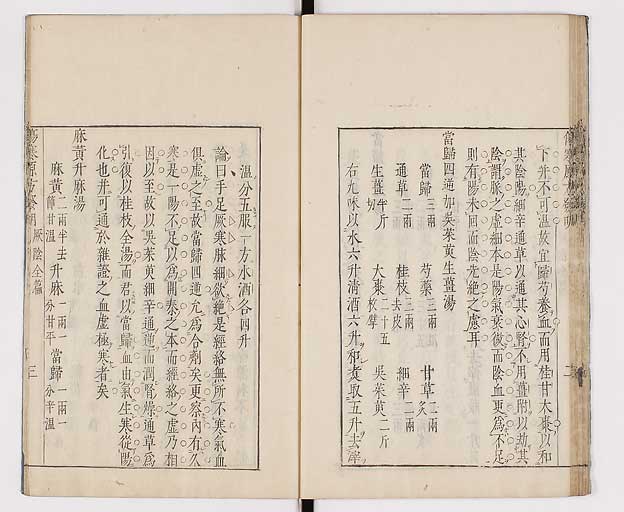 下并不可溫故宜歸芍養血而用桂甘木棗以和
其陰陽細辛通草以通其心腎不用薑附以劫其
陰謂脈之虛細本是陽氣衰復而陰血更爲不足
則有陽未回而陰先絶之慮耳
當歸四逆加吳茱萸生薑湯
當歸三兩 芍藥三兩 甘草二兩炙
通草二兩 桂枝三兩去皮 細辛三兩
生薑半斤切 大棗二十五枚擘 吳茱萸二斤
右九味以水六升清酒六升和煑取五升去滓
溫分五服一方水酒各四升
論曰手足厥寒脉細欲絶是經絡無所不寒氣血
俱虛之至故當歸四逆允爲合劑矣更察內有久
寒是一陽不足以爲開泰之本而經絡之虛乃相
因以至故以吳茱萸細辛通逆而潤腎燥通草爲
引復以桂枝全湯而君以當歸血由氣生寒從陽
化也并可通於雜證之血虛極寒者矣
麻黃升麻湯
麻黃二兩半去節甘温 升麻一兩一分甘平 當歸一兩一分辛温
厥陰全篇 三